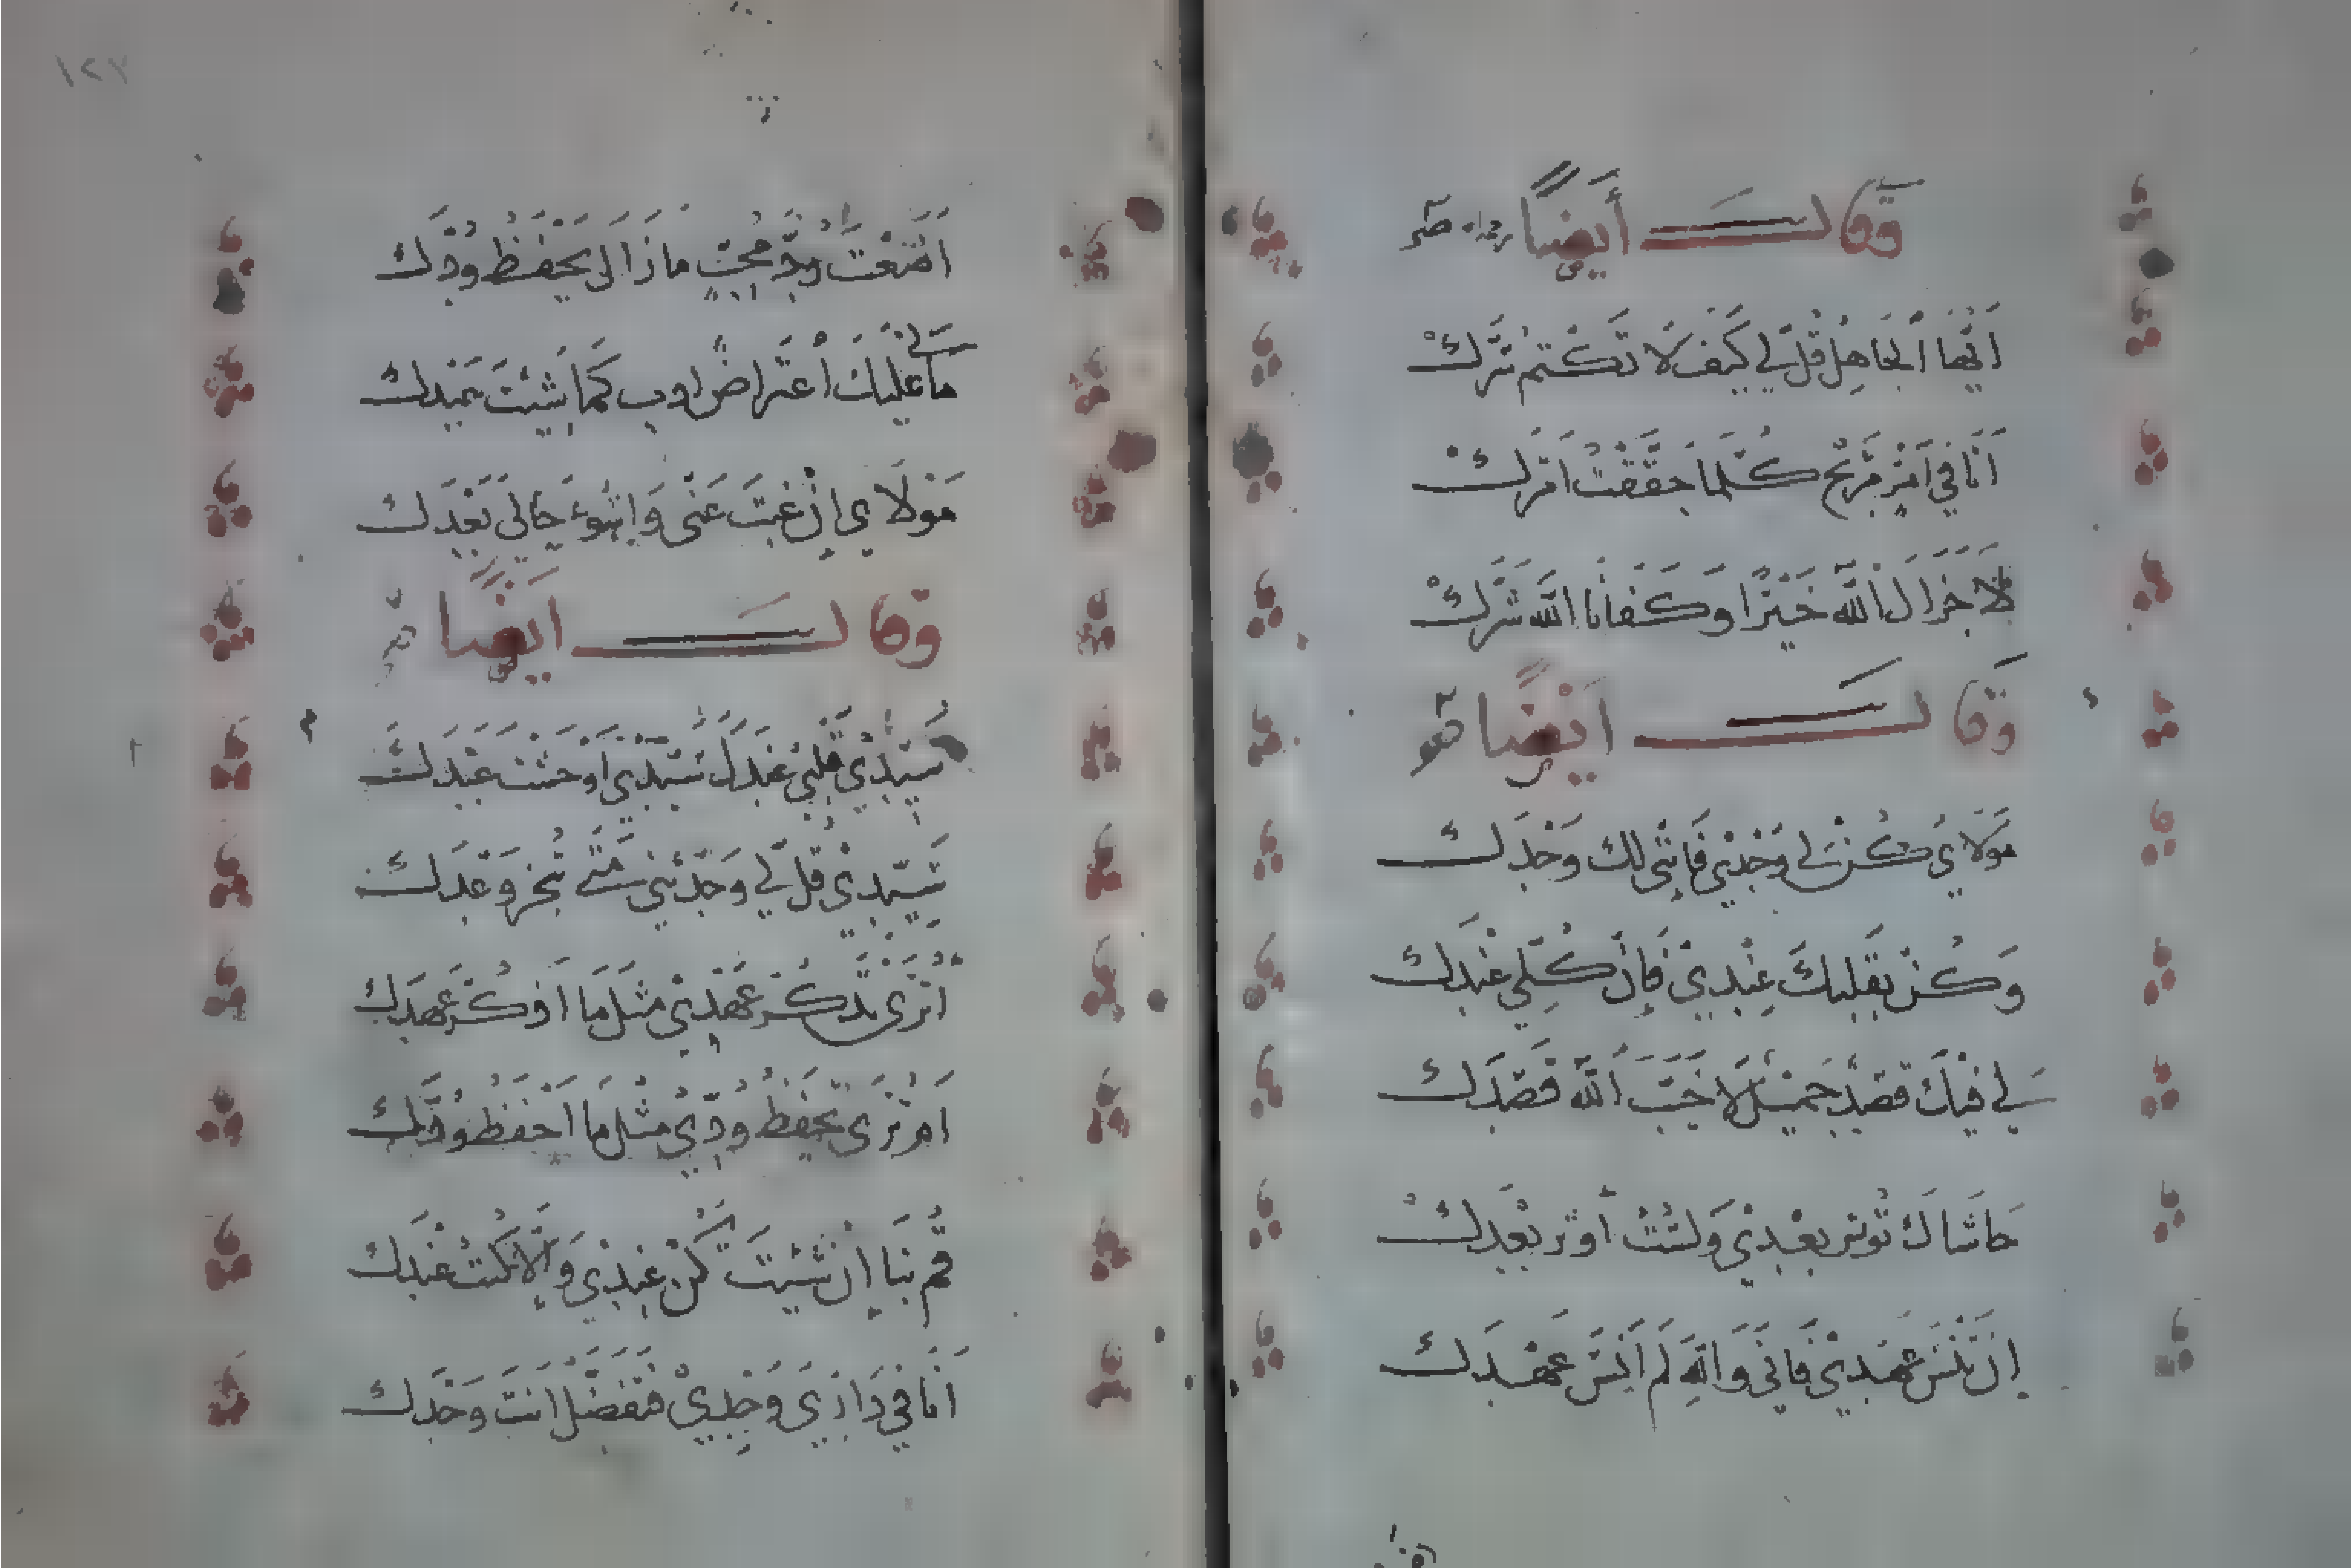 وَقَالَ أَيضًا رحمه الله
أَيُّهَا الجَاهِلُ قُل لي كَيفَ لَا تَكْتُمُ سِرَّكْ
أَنَا في أَمْرٍ مَرِيحٍ كُلَّمَا حَقَّقْتُ أَمْرَكْ
لَا جَزَاكَ اللَّه خَيْرًا وَكَفَانَا اللَّه شَرَّكْ
وَقَالَ أَيْضًا
مَولَايَ كُنْ لي وَحْدِي فَإِنَّنِي لك وَحْدَكْ
وَكُنْ بِقَلبكَ عِنْدِيْ فَإِنَّ كُلِّي عِنْدَكْ
لي فِيكَ قَصْدٌ جَمِيْلٌ لَا خَيَّبَ اللَّه قَصْدَكْ
حَاشَاكَ تُوثر بُعْدِيْ وَلَسْتُ أُوثر بُعْدَكْ
إِنْ تَنْسَ عَهْدِيْ فَإِنِّي وَاللَّهِ لَم أَنْسَ عَهْدَكْ
١٢٧
أَضَعْتَ وُدَّ مُحِبٍّ مَا زَالَ يَحْفَظُ وُدَّك
مَا لي عَلَيْكَ اعْتَراضٌ أدب كَمَا شِئْتَ عَبْدك
مَوْلَاي إِنْ غِبْتَ عَنِّى وَاسُوءَ حَالِيَ بَعْدَك
وَقَالَ أَيْضًا
سَيِّدِيْ قَلْبِيْ عِنْدَكْ سَيِّدِيْ أَوْحَشْتَ عَبْدَكْ
سَيِّدِيْ قُل لي وَحَدِّثْنِي مَتَى تُنْجز وَعْدَكْ
أَتُرَى تَذْكُرُ عَهْدِيْ مِثْلَ مَا أَذْكُرُ عَهْدَكْ
أَم تُرَى تَحْفَظُ وُدِّيْ مِثْلَ مَا أَحْفَظُ وُدَّكْ
قُم بِنَا إِنْ شِئْتَ كُنْ عِنْدِيْ وَإِلَّا كُنْتُ عِنْدَك
أَنَا فِي دَارِيَ وَحْدِيْ فَتَفَضَّلْ أَنتَ وَحْدَك